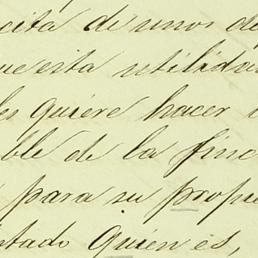 cita de unos de
ue esta utilida
les quiere hacer
ble de la finc
para su prope
ntado quien es,